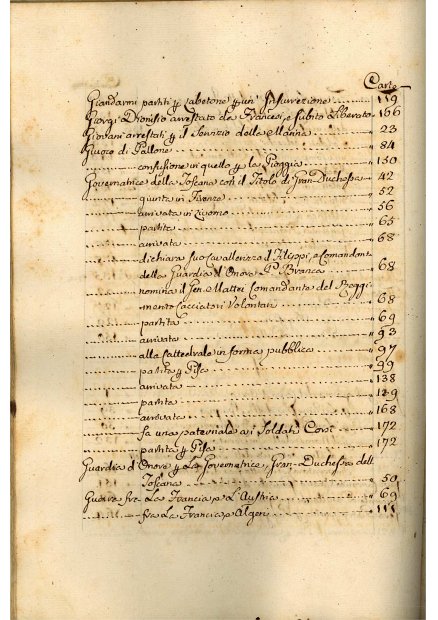 Carte
Giandarmi partiti p. Cabetone p. un' Insurrezione " 119
Giorgi Dionisio arrestato da Francesi, e subito liberato " 106
Giovani arrestati p. il Servizio della Marina " 23
Giuoco di Pallone " 84
confusione in quello p. la Pioggia " 130
Governatrice della Toscana con il Titolo di Gran-Duchessa " 42
giunta in Firenze " 52
arrivata in Livorno " 56
partita " 65
arrivata " 68
dichiara suo Cavallerizzo il Filippi, e Comandant
della Guardia d'Onore Branca " 68
nomina il Gen. Mattei Comandante del Reggi
mento Cacciatori Volontari " 68
partita " 69
arrivata " 93
alla Cattedrale in forma pubblica " 97
partita p. Pisa " 99
arrivata " 138
partita " 149
arrivata " 168
fa una paternale a i Soldati Corsi " 172
partita p. Pisa " 172
Guardia d'Onore p. La Governatrice, Gran-Duchessa dell
Toscana " 50
Guerra fra La Francia, e L'Austria " 69
fra La Francia, e Algeri " 111